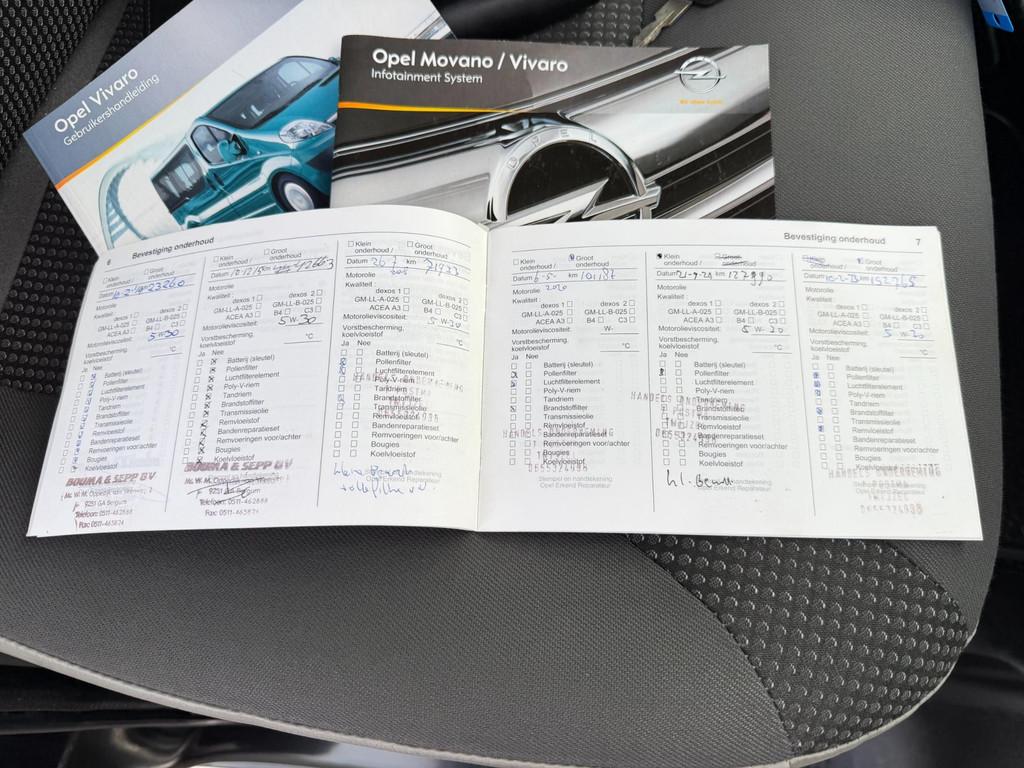 Opel Vivaro
Gebruikershandleiding
Opel Movano / Vivaro
Infotainment System
OPEL
6
Bevestiging onderhoud
Klein onderhoud / Groot onderhoud
Datum km 23260
Motorolie
Kwaliteit:
dexos 1 dexos 2
GM-LL-A-025 GM-LL-B-025
ACEA A3 B4 C3
Motorolieviscositeit: 5 W-30
Vorstbescherming, koelvloeistof °C
Ja Nee
Batterij (sleutel)
Pollenfilter
Luchtfilterelement
Poly-V-riem
Tandriem
Brandstoffilter
Transmissieolie
Remvloeistof
Bandenreparatieset
Remvoeringen voor/achter
Bougies
Koelvloeistof
BOUMA & SEPP BV
9251 GA Bergum
Telefoon: 0511-462888
Fax: 0511-465874
Klein onderhoud / Groot onderhoud
Datum km 42663
Motorolie
Kwaliteit:
dexos 1 dexos 2
GM-LL-A-025 GM-LL-B-025
ACEA A3 B4 C3
Motorolieviscositeit: 5 W-30
Vorstbescherming, koelvloeistof °C
Ja Nee
Batterij (sleutel)
Pollenfilter
Luchtfilterelement
Poly-V-riem
Tandriem
Brandstoffilter
Transmissieolie
Remvloeistof
Bandenreparatieset
Remvoeringen voor/achter
Bougies
Koelvloeistof
BOUMA & SEPP BV
9251 GA Bergum
Telefoon: 0511-462888
Fax: 0511-465874
Klein onderhoud / Groot onderhoud
Datum 26-7 km 71933
Motorolie
Kwaliteit:
dexos 1 dexos 2
GM-LL-A-025 GM-LL-B-025
ACEA A3 B4 C3
Motorolieviscositeit: 5 W-30
Vorstbescherming, koelvloeistof °C
Ja Nee
Batterij (sleutel)
Pollenfilter
Luchtfilterelement
Poly-V-riem
Tandriem
Brandstoffilter
Transmissieolie
Remvloeistof
Bandenreparatieset
Remvoeringen voor/achter
Bougies
Koelvloeistof
Opel Erkend Reparateur
Bevestiging onderhoud
7
Klein onderhoud / Groot onderhoud
Datum 6-5- km 101187
2020
Motorolie
Kwaliteit:
dexos 1 dexos 2
GM-LL-A-025 GM-LL-B-025
ACEA A3 B4 C3
Motorolieviscositeit: W-
Vorstbescherming, koelvloeistof °C
Ja Nee
Batterij (sleutel)
Pollenfilter
Luchtfilterelement
Poly-V-riem
Tandriem
Brandstoffilter
Transmissieolie
Remvloeistof
Bandenreparatieset
Remvoeringen voor/achter
Bougies
Koelvloeistof
HANDELS ONDERNEMING
0655324988
Stempel en handtekening
Opel Erkend Reparateur
Klein onderhoud / Groot onderhoud
Datum km 127990
Motorolie
Kwaliteit:
dexos 1 dexos 2
GM-LL-A-025 GM-LL-B-025
ACEA A3 B4 C3
Motorolieviscositeit: 5 W-30
Vorstbescherming, koelvloeistof °C
Ja Nee
Batterij (sleutel)
Pollenfilter
Luchtfilterelement
Poly-V-riem
Tandriem
Brandstoffilter
Transmissieolie
Remvloeistof
Bandenreparatieset
Remvoeringen voor/achter
Bougies
Koelvloeistof
HANDELS ONDERNEMING
Opel Erkend Reparateur
onderhoud / Groot onderhoud
Datum km 152765
Motorolie
Kwaliteit:
dexos 1 dexos 2
GM-LL-A-025 GM-LL-B-025
ACEA A3 B4 C3
Motorolieviscositeit: 5 W-30
Vorstbescherming, koelvloeistof °C
Ja Nee
Batterij (sleutel)
Pollenfilter
Luchtfilterelement
Poly-V-riem
Tandriem
Brandstoffilter
Transmissieolie
Remvloeistof
Bandenreparatieset
Remvoeringen voor/achter
Bougies
Koelvloeistof
HANDELS ONDERNEMING
0655324988